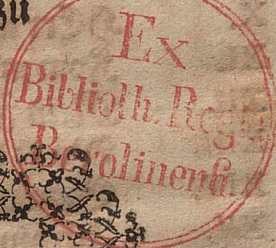 zu
Ex
Biblioth. Regia
Berolinensi.